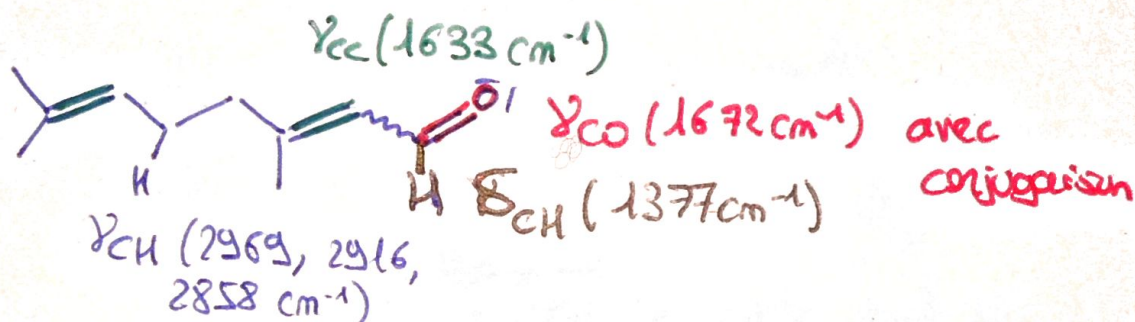 γcc (1633 cm⁻¹)
O
γCO (1672 cm⁻¹) avec
conjugaison
H
H δCH (1377cm⁻¹)
γCH (2969, 2916,
2858 cm⁻¹)